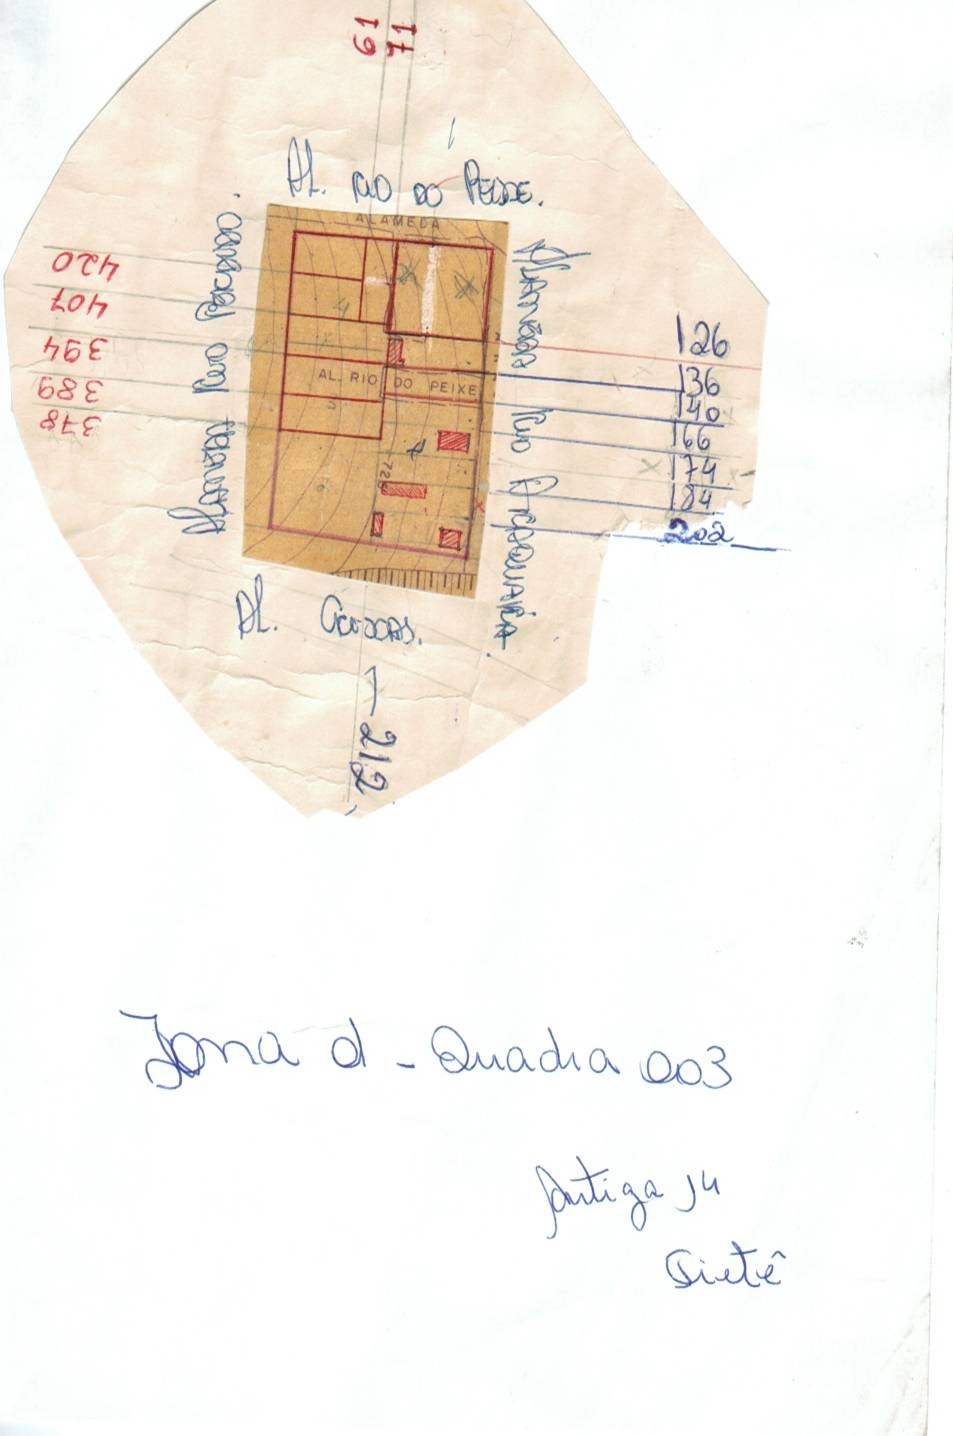 61
71
AL. RIO DO PEIXE.
ALAMEDA
420
407
394
389
378
126
136
140
166
174
184
202
AL. RIO DO PEIXE
4
72
AL.
212
Zona d - Quadra 003
Antiga 14
Tietê